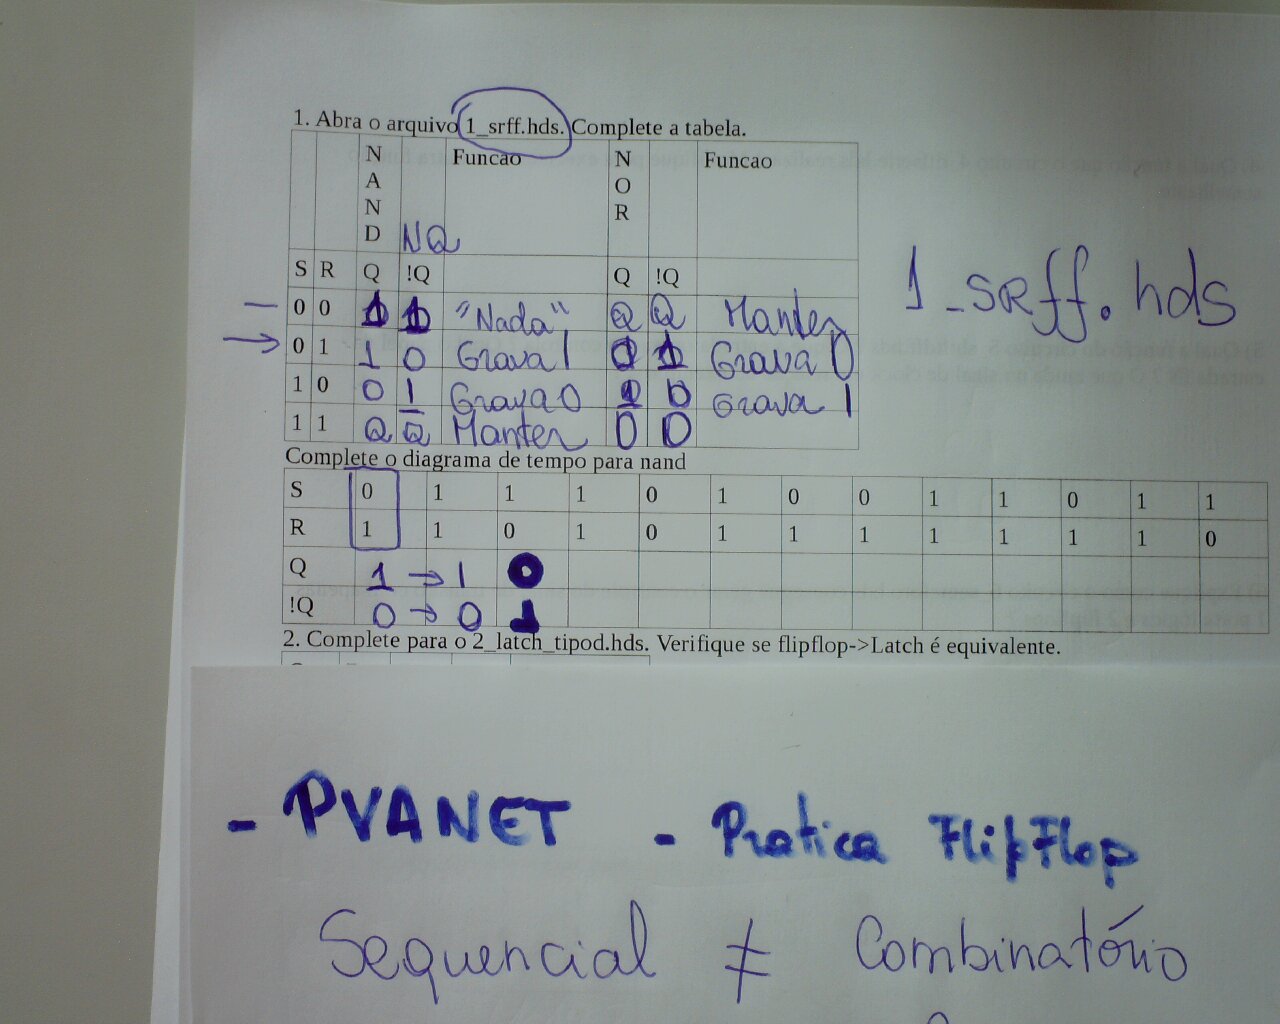 1. Abra o arquivo 1_srff.hds. Complete a tabela.
N A N D NQ Funcao N O R Funcao
S R Q !Q Q !Q
0 0 1 1 "Nada" Q Q Manter
0 1 1 0 Grava 1 0 1 Grava 0
1 0 0 1 Grava 0 1 0 Grava 1
1 1 Q Q Manter 0 0
1_srff.hds
Complete o diagrama de tempo para nand
S 0 1 1 1 0 1 0 0 1 1 0 1 1
R 1 1 0 1 0 1 1 1 1 1 1 1 0
Q 1 → 1 0
!Q 0 → 0 1
2. Complete para o 2_latch_tipod.hds. Verifique se flipflop->Latch é equivalente.
- PVANET - Pratica FlipFlop
Sequencial ≠ Combinatório